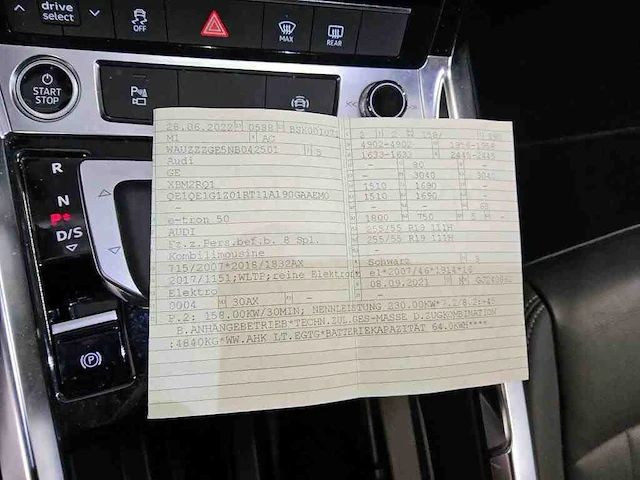 drive
select
OFF
MAX
REAR
START
STOP
R
N
P
D/S
28.06.2022 0588
M1 AC
WAUZZZGE5NB042501 5
Audi
GE
XBM2RQ1
QE1QE1G1Z01RT11A190GAAEM0
-
e-tron 50
AUDI
Fz.z.Pers.bef.b. 8 Spl.
Kombilimousine
715/2007*2018/1832AX
2017/1151;WLTP;reine Elektro
Elektro
0004 30AX -
4902-4902 1956-1956
1633-1633 2445-2445
- 80
- 3040 3040
1510 1690 -
1510 1690 -
- 68
1800 750
255/55 R19 111H
255/55 R19 111H
-
Schwarz 9
e1*2007/46*1914*14
08.09.2021
P.2: 158.00KW/30MIN; NENNLEISTUNG 230.00KW*7.2/8.2:+45
B.ANHÄNGEBETRIEB*TECHN.ZUL.GES-MASSE D.ZUGKOMBINATION
:4840KG*WW.AHK LT.EGTG*BATTERIEKAPAZITÄT 64.0KWH****